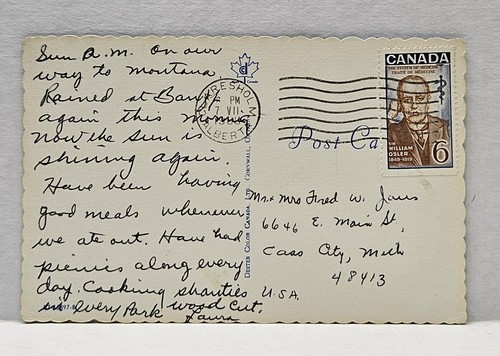 Sun A.M. On our
way to Montana.
Rained at Banff
again this morning
now the sun is
shining again.
Have been having
good meals whenever
we ate out. Have had
picnics along every
day. Cooking shanties
in every Park wood cut.
Laura
DEXTER COLOR CANADA, LTD. CORNWALL,
d
Canada
CLARESHOLM
PM
VII
ALBERTA
Post Ca
CANADA
THE SYSTEM OF MEDICINE
TRAITÉ DE MÉDECINE
SIR
WILLIAM
OSLER
1849-1919
6
Mr. & Mrs Fred W.
6646 E. Main St,
Cass City, Mich
48413
U.S.A.